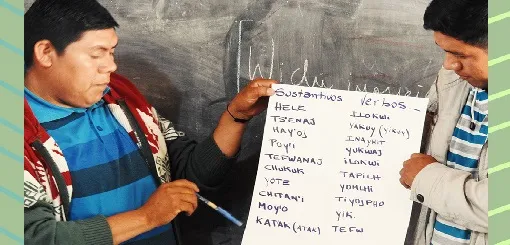 Sustantivos Verbos
HELE ILOKWI
TS'ENAJ YAKUY (YIKUY)
HAY'OJ INAYHIT
POYI YUKWAJ
TEFWANAJ ILOKWI
CHUKUK TAPILH
YOTE YOMLHI
CHITAN'I TIYOJPHO
MOY'O YIK.
KATAK (ATAK) TEFW